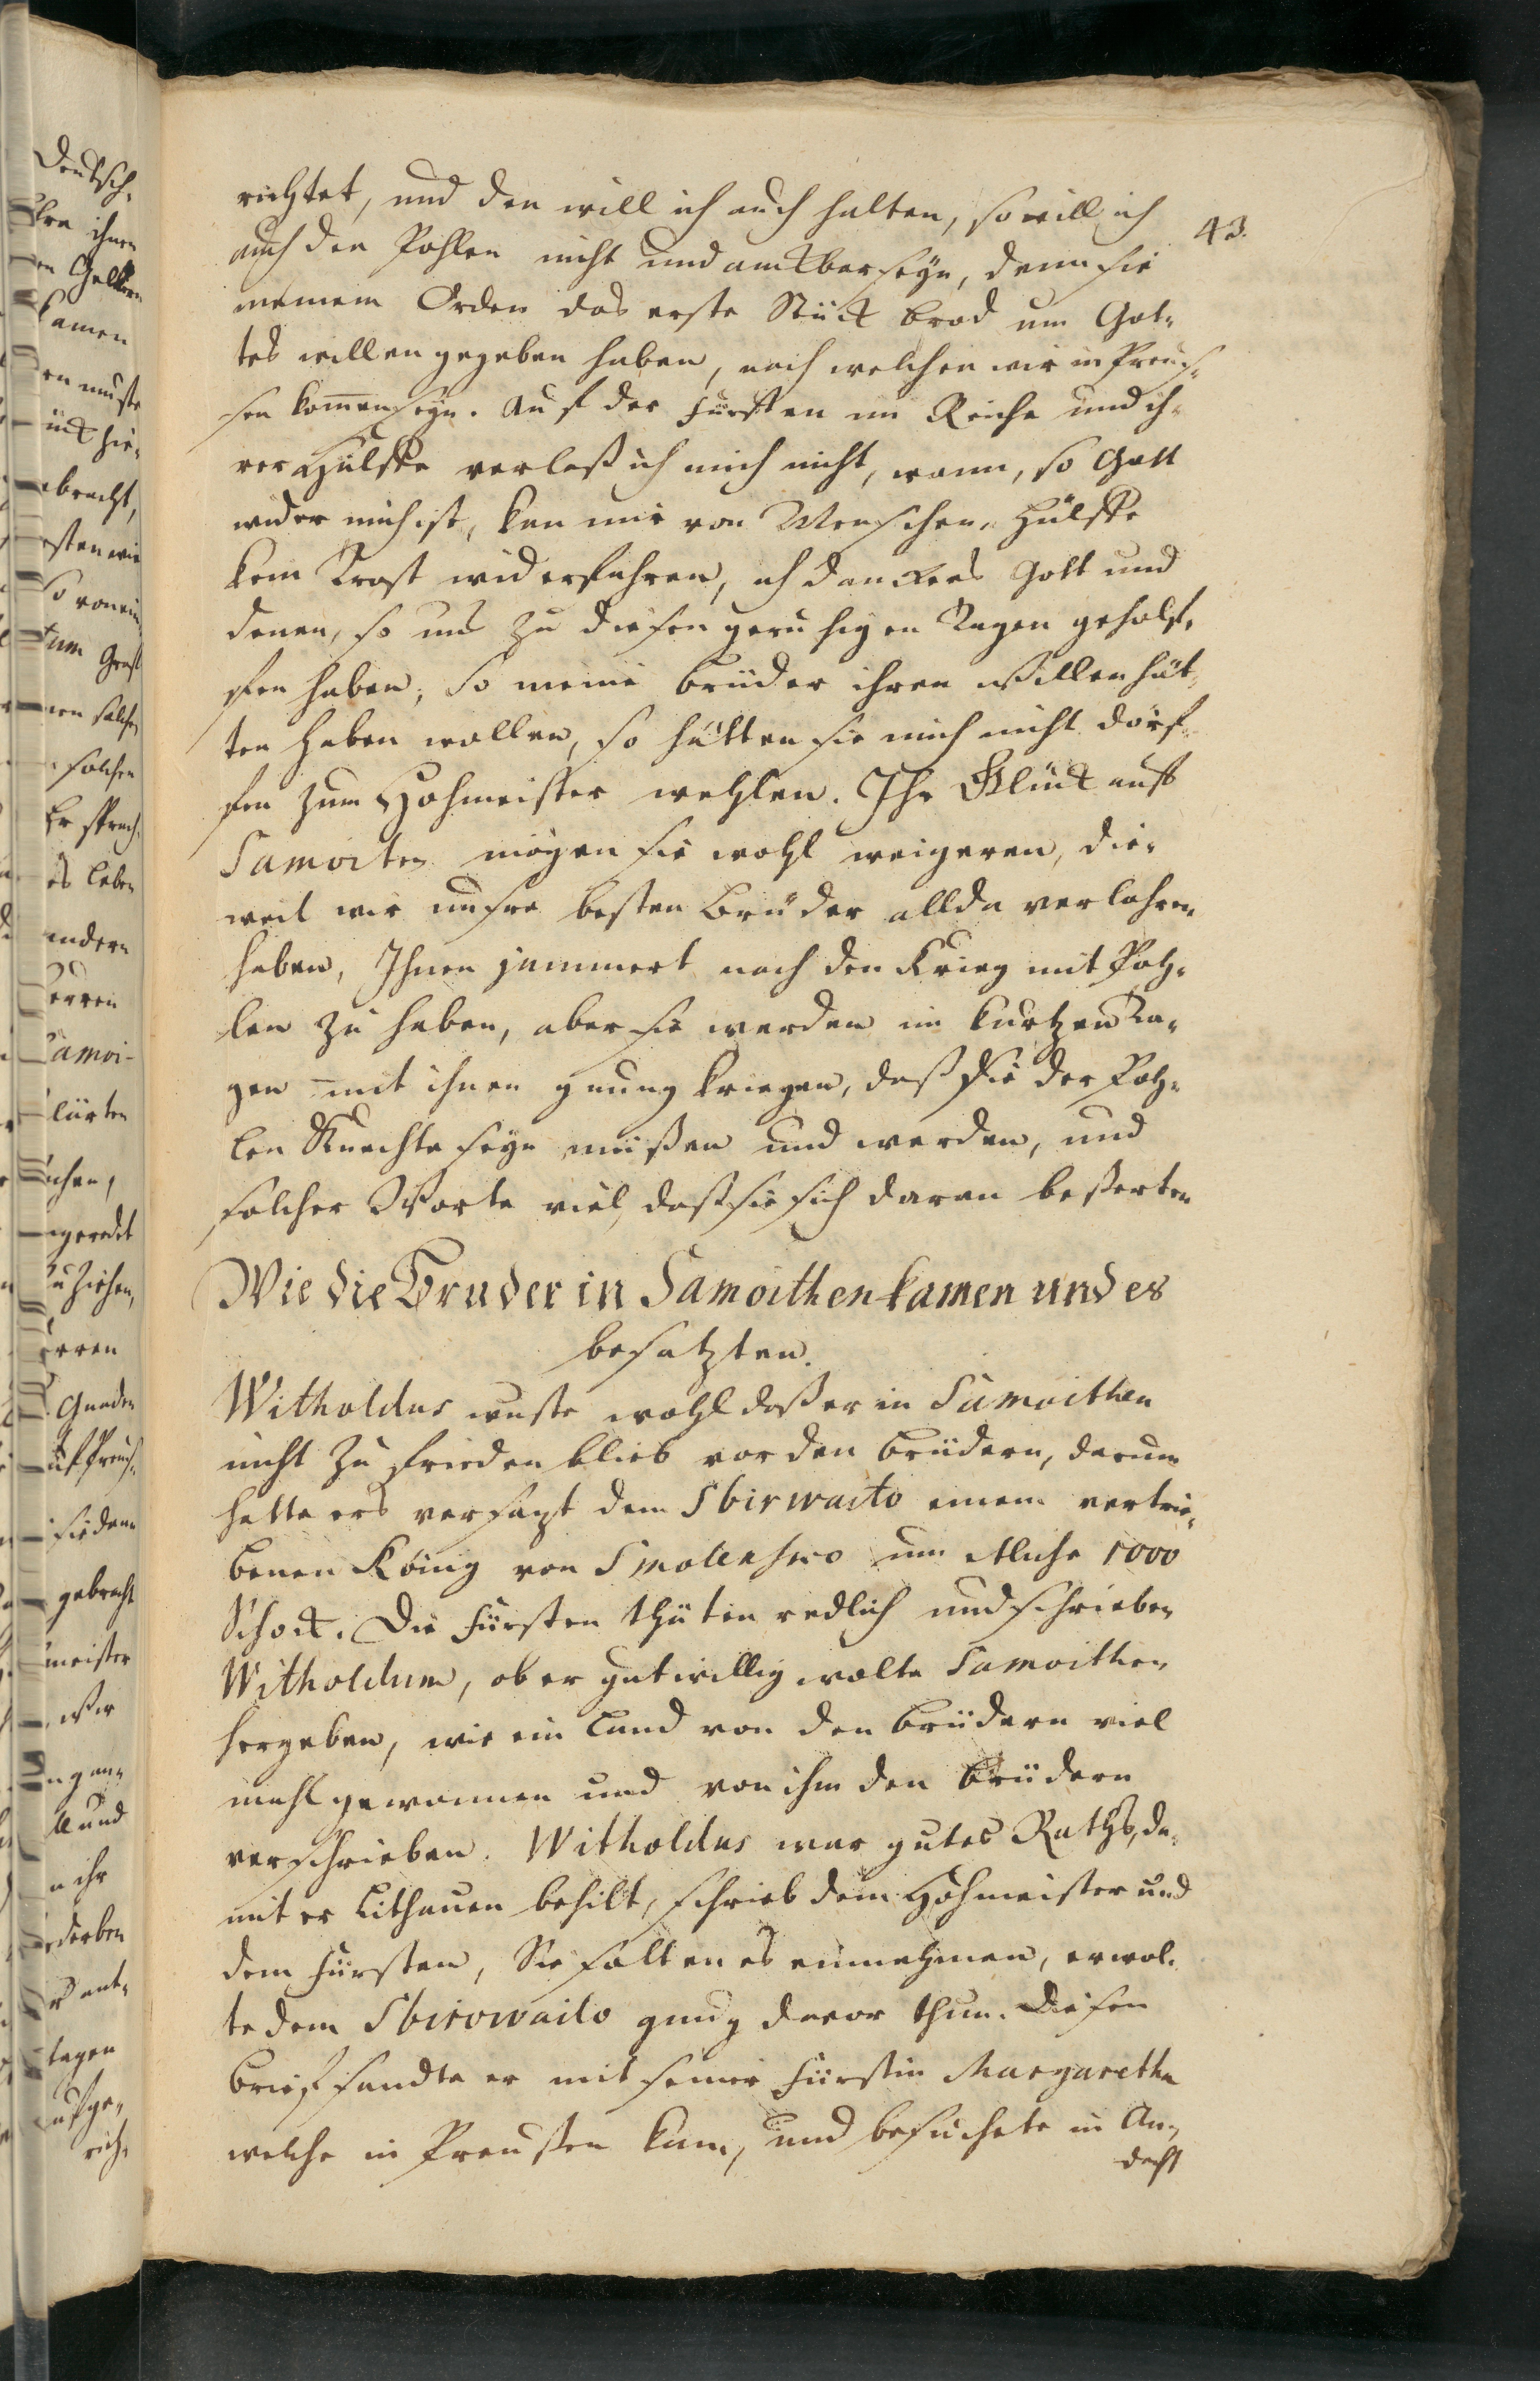 43.
richtet, und den will ich auch halten, so will ich
auch den Pohlen nicht undanckbar seyn, denn sie
meinem Orden das erste Stück brod um Got-
tes willen gegeben haben, nach welchen wir in Preuß-
sen kommen seyn. Auf der Fürsten im Reiche und ih-
rer Hülffe verlaß ich mich nicht, wann, so Gott
wider mich ist, kan mir von Menschen Hülffe
kein Trost widerfahren, ich dancke es Gott und
denen, so uns zu diesen geruhigen Tagen geholf-
fen haben, So meine brüder ihren willen hät-
ten haben wollen, so hätten sie mich nicht dörf-
fen zum Hohmeister wehlen. Ihr Glück auff
Samoiten mögen sie wohl weigeren, die-
weil wir unsre besten Brüder allda verlohren
haben, Ihnen jammert nach den Krieg mit Poh-
len zu haben, aber sie werden in kurtzen Ta-
gen mit ihnen gnung kriegen, daß sie der Poh-
len Knechte seyn müßen und werden, und
solcher Worte viel, daß sie sich daran beßerten
Wie die Bruder in Samoithen kamen und es
besatzten.
Witholdus wuste wohl daß er in Samoithen
nicht zu frieden blieb vor den brüdern, darum
hatte ers versatzt dem Sbirwaito einem vertrie-
benen König von Smolensko um etliche 1000
Schock. Die Fürsten thäten redlich und schrieben
Witholdum, ob er gutwillig wolte Samoithen
hergeben, wie ein Land von den brüdern viel
mahl gewonnen und von ihm den brüdern
verschrieben. Witholdus war gutes Raths, da-
mit er Lithauen behilt, schrieb dem Hohmeister und
dem Fürsten, Sie solten es einnehmen, er wol-
te dem Sbirowaito gnug davor thun. Diesen
brief sandte er mit seiner Fürstin Margaretha
welche in Preussen kam, und besuchete in An-
dacht